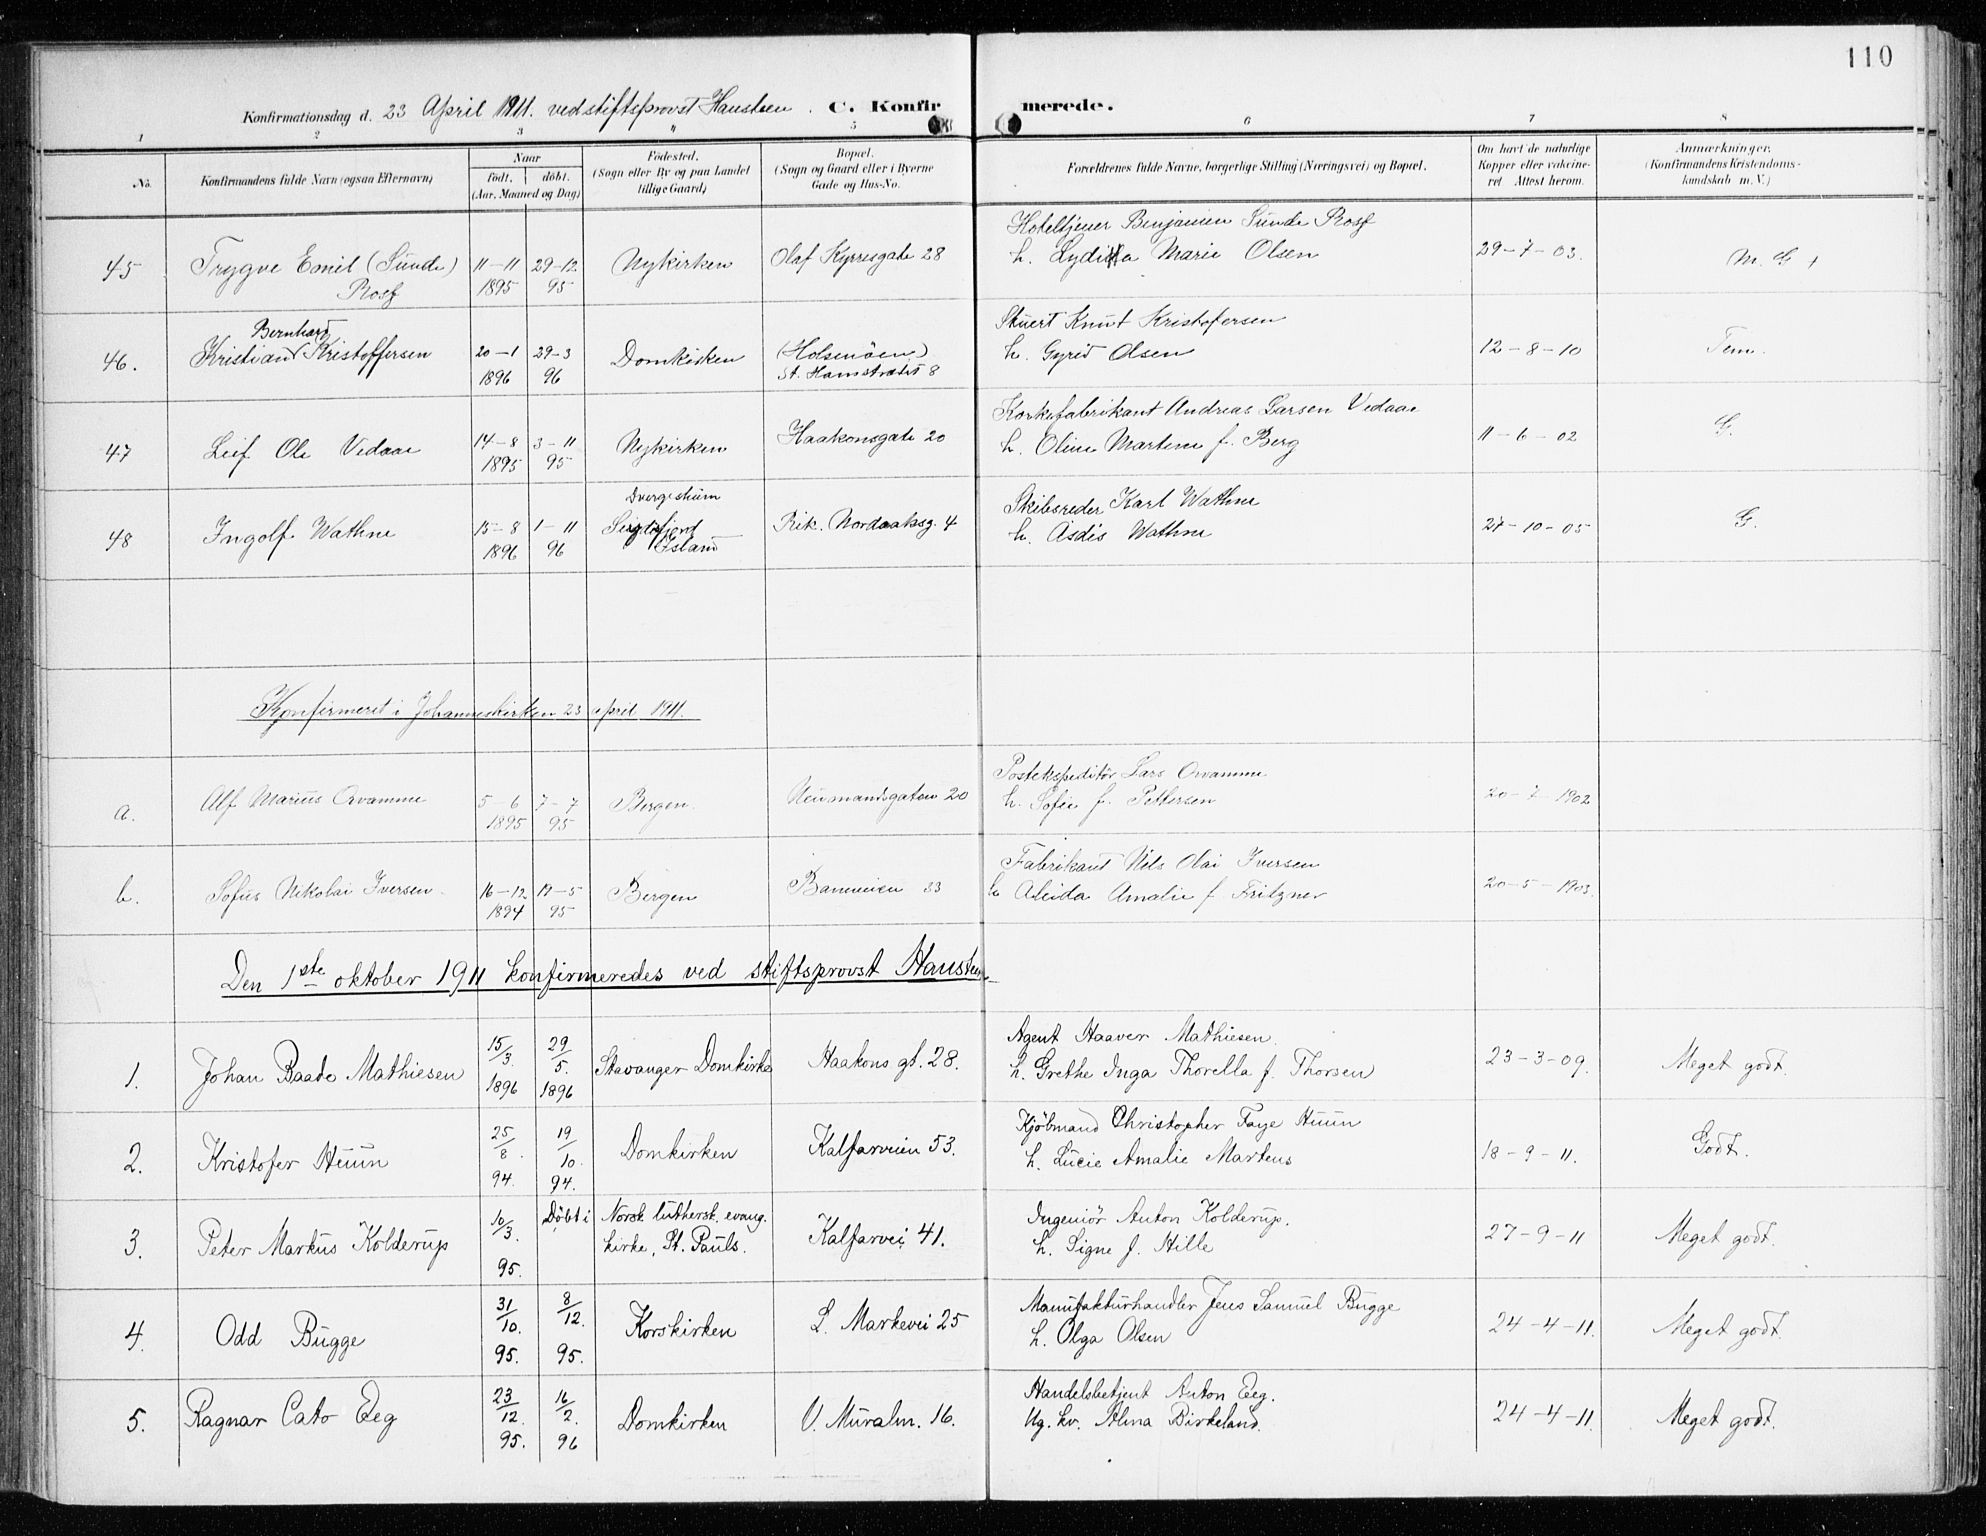 110
Konfirmationsdag d. 23 April 1911. ved stiftsprovst Hansteen. C. Konfirmerede.
1 2 3 4 5 6 7 8
No. Konfirmandens fulde Navn (ogsaa Efternavn) Naar født. døbt. (Aar, Maaned og Dag) Fødested. (Sogn eller By og paa Landet tillige Gaard) Bopæl. (Sogn og Gaard eller i Byerne Gade og Hus-No. Forældrenes fulde Navne, borgerlige Stilling (Næringsvei) og Bopæl. Om havt de naturlige Kopper eller vakcineret. Attest herom. Anmærkninger. (Konfirmandens Kristendomskundskab m. V.)
45 Trygve Emil (Sunde) Rosf 11-11 1895 29-12 95 Nykirken Olaf Kyrresgate 28 Hoteltjener Benjamin Sunde Rosf
h. Lydia Marie Olsen 29-7-03. M. G +
46. Kristian Bernhard Kristoffersen 20-1 1896 29-3 96 Domkirken (Holsenöen) St. Hansstrædet 8 Stuert Knut Kristofersen
h. Gyrid Olsen 12-8-10 Tem.
47 Leif Ole Vedaae 14-8 1895 3-11 95 Nykirken Haakonsgate 20 Korkefabrikant Andreas Larsen Vedaae
h. Oline Martine f. Berg 11-6-02 G.
48 Ingolf Wathne 15-8 1896 1-11 96 Seydisfjord Island Rik. Nordaaksg. 4 Skibsreder Karl Wathne
h. Asdis Wathne 27-10-05 G.
Konfirmeret i Johanneskirken 23 april 1911.
a. Alf Marius Orvamme 5-6 1895 7-7 95 Bergen. Neumandsgaten 20 Postekspeditör Lars Orvamme
h. Sofie f. Pettersen 20-7-1902
b. Sofus Nikolai Iversen 16-12 1894 17-5 95 Bergen Baneveien 33 Fabrikant Nils Olai Iversen
h Aleida Amalie f Fritzner 20-5-1903.
Den 1ste oktober 1911 konfirmeredes ved stiftsprovst Hansteen
1. Johan Baade Mathiesen 15/3. 1896 29/5. 1896 Stavanger Domkirke Haakons gt. 28. Agent Haaver Mathiesen.
h. Grethe Inga Thorella f. Thorsen 23-3-09. Meget godt.
2. Kristofer Huun 25/8. 94. 19/10. 94. Domkirken Kalfarveien 53. Kjöbmand Christopher Faye Huun
h. Lucie Amalie Martens 18-9-11. Godt.
3. Peter Markus Kolderup 16/3. 95. Döbt i Norsk luthersk. evang. kirke, St. Pauls. Kalfarvei 41. Ingeniör Anton Kolderup.
h. Signe f. Hille 27-9-11 Meget godt.
4. Odd Bugge 31/10. 95. 8/12. 95. Korskirken L. Markevei 25 Manufakturhandler Jens Samuel Bugge
h. Olga Olsen 24-4-11. Meget godt.
5. Ragnar Cato Eeg 23/12. 95. 16/2. 96 Domkirken V. Muralm. 16. Handelsbetjent Anton Eeg.
Ug. kv. Alma Birkeland. 24-4-11. Meget godt.